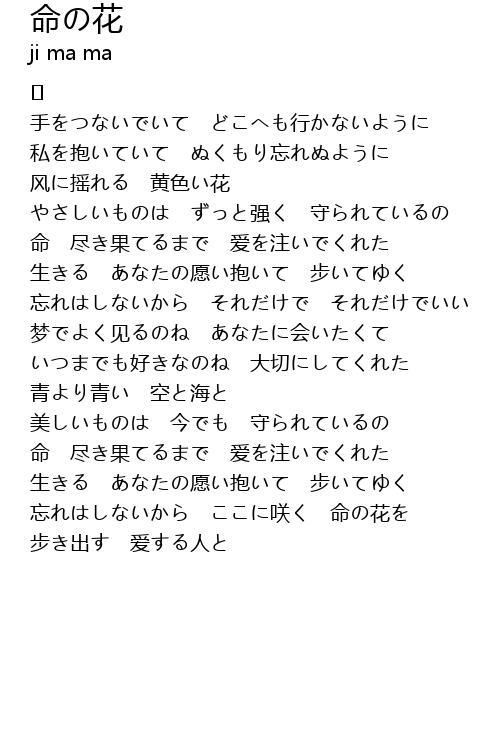 命の花
ji ma ma
[]
手をつないでいて　どこへも行かないように
私を抱いていて　ぬくもり忘れぬように
风に摇れる　黄色い花
やさしいものは　ずっと强く　守られているの
命　尽き果てるまで　爱を注いでくれた
生きる　あなたの愿い抱いて　歩いてゆく
忘れはしないから　それだけで　それだけでいい
梦でよく见るのね　あなたに会いたくて
いつまでも好きなのね　大切にしてくれた
青より青い　空と海と
美しいものは　今でも　守られているの
命　尽き果てるまで　爱を注いでくれた
生きる　あなたの愿い抱いて　歩いてゆく
忘れはしないから　ここに咲く　命の花を
歩き出す　爱する人と